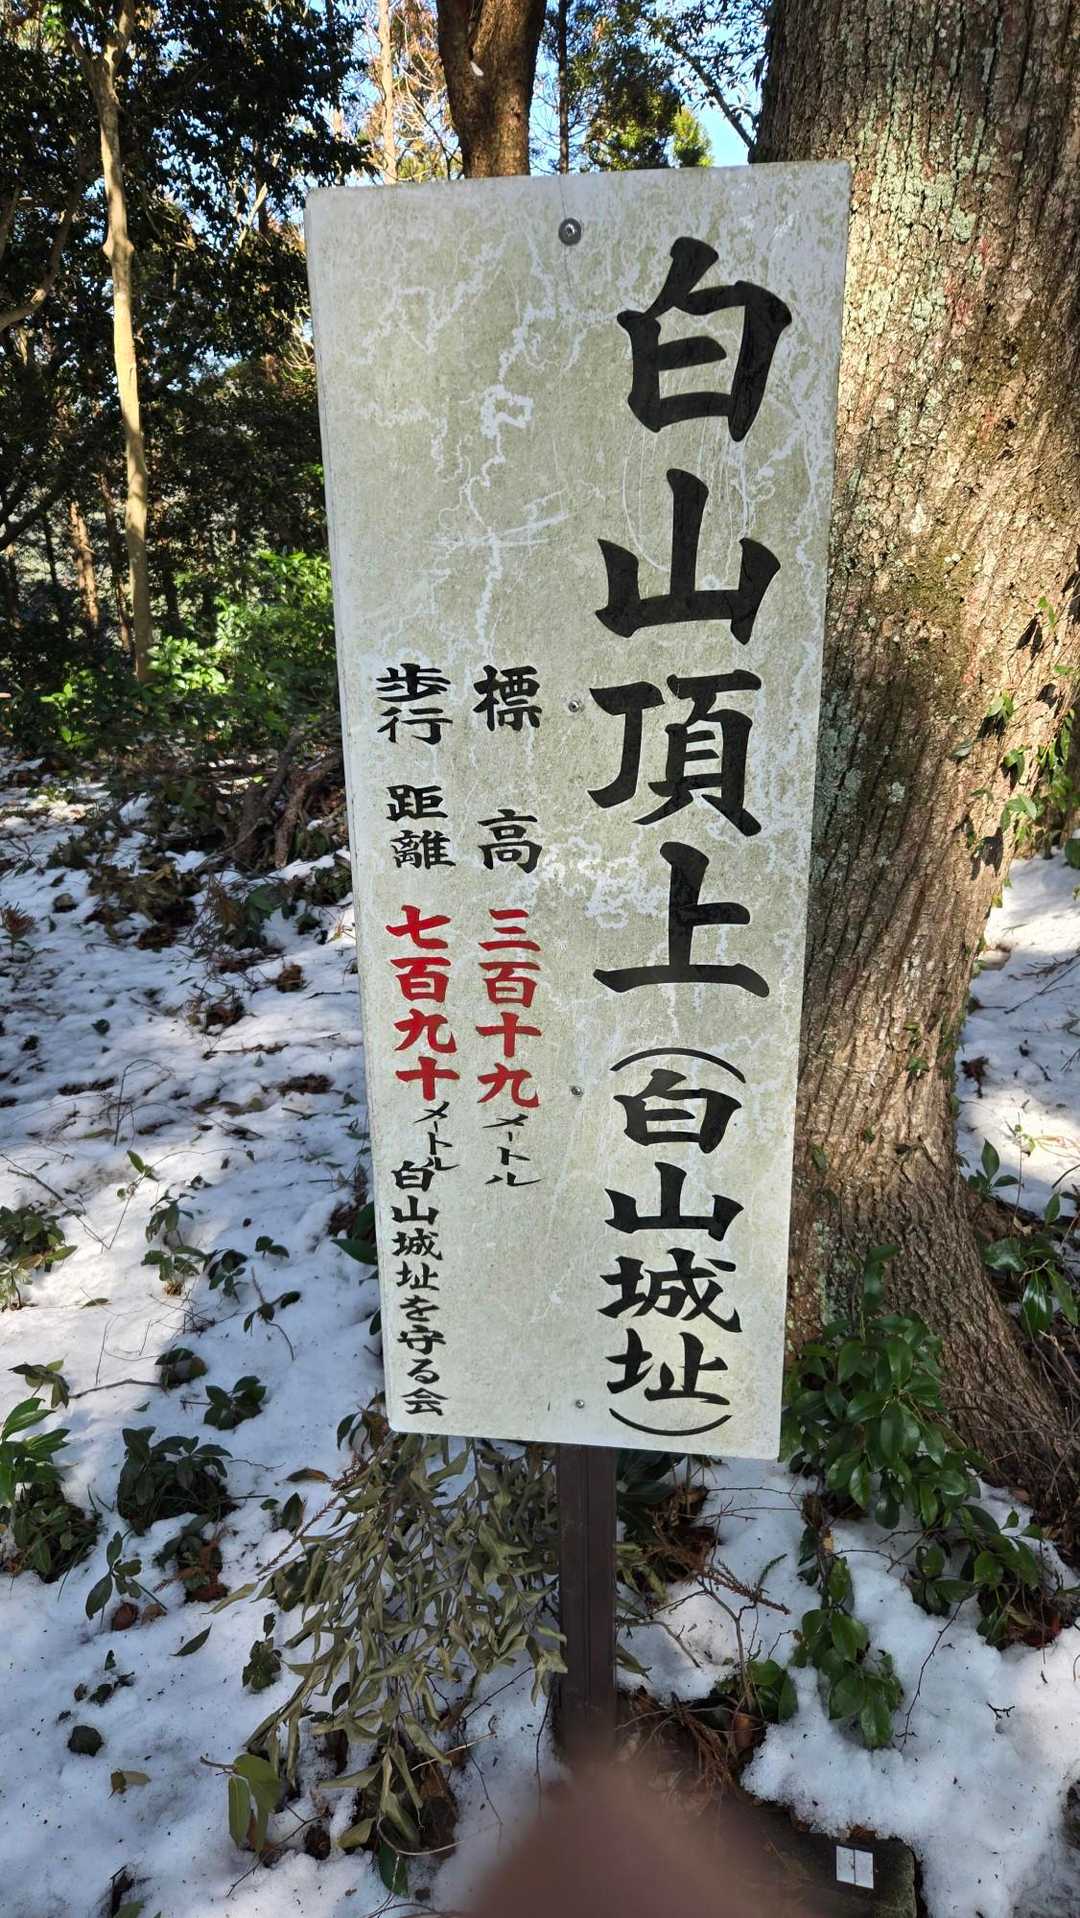 白山頂上(白山城址)
標高 三百十九メートル
歩行距離 七百九十メートル
白山城址を守る会